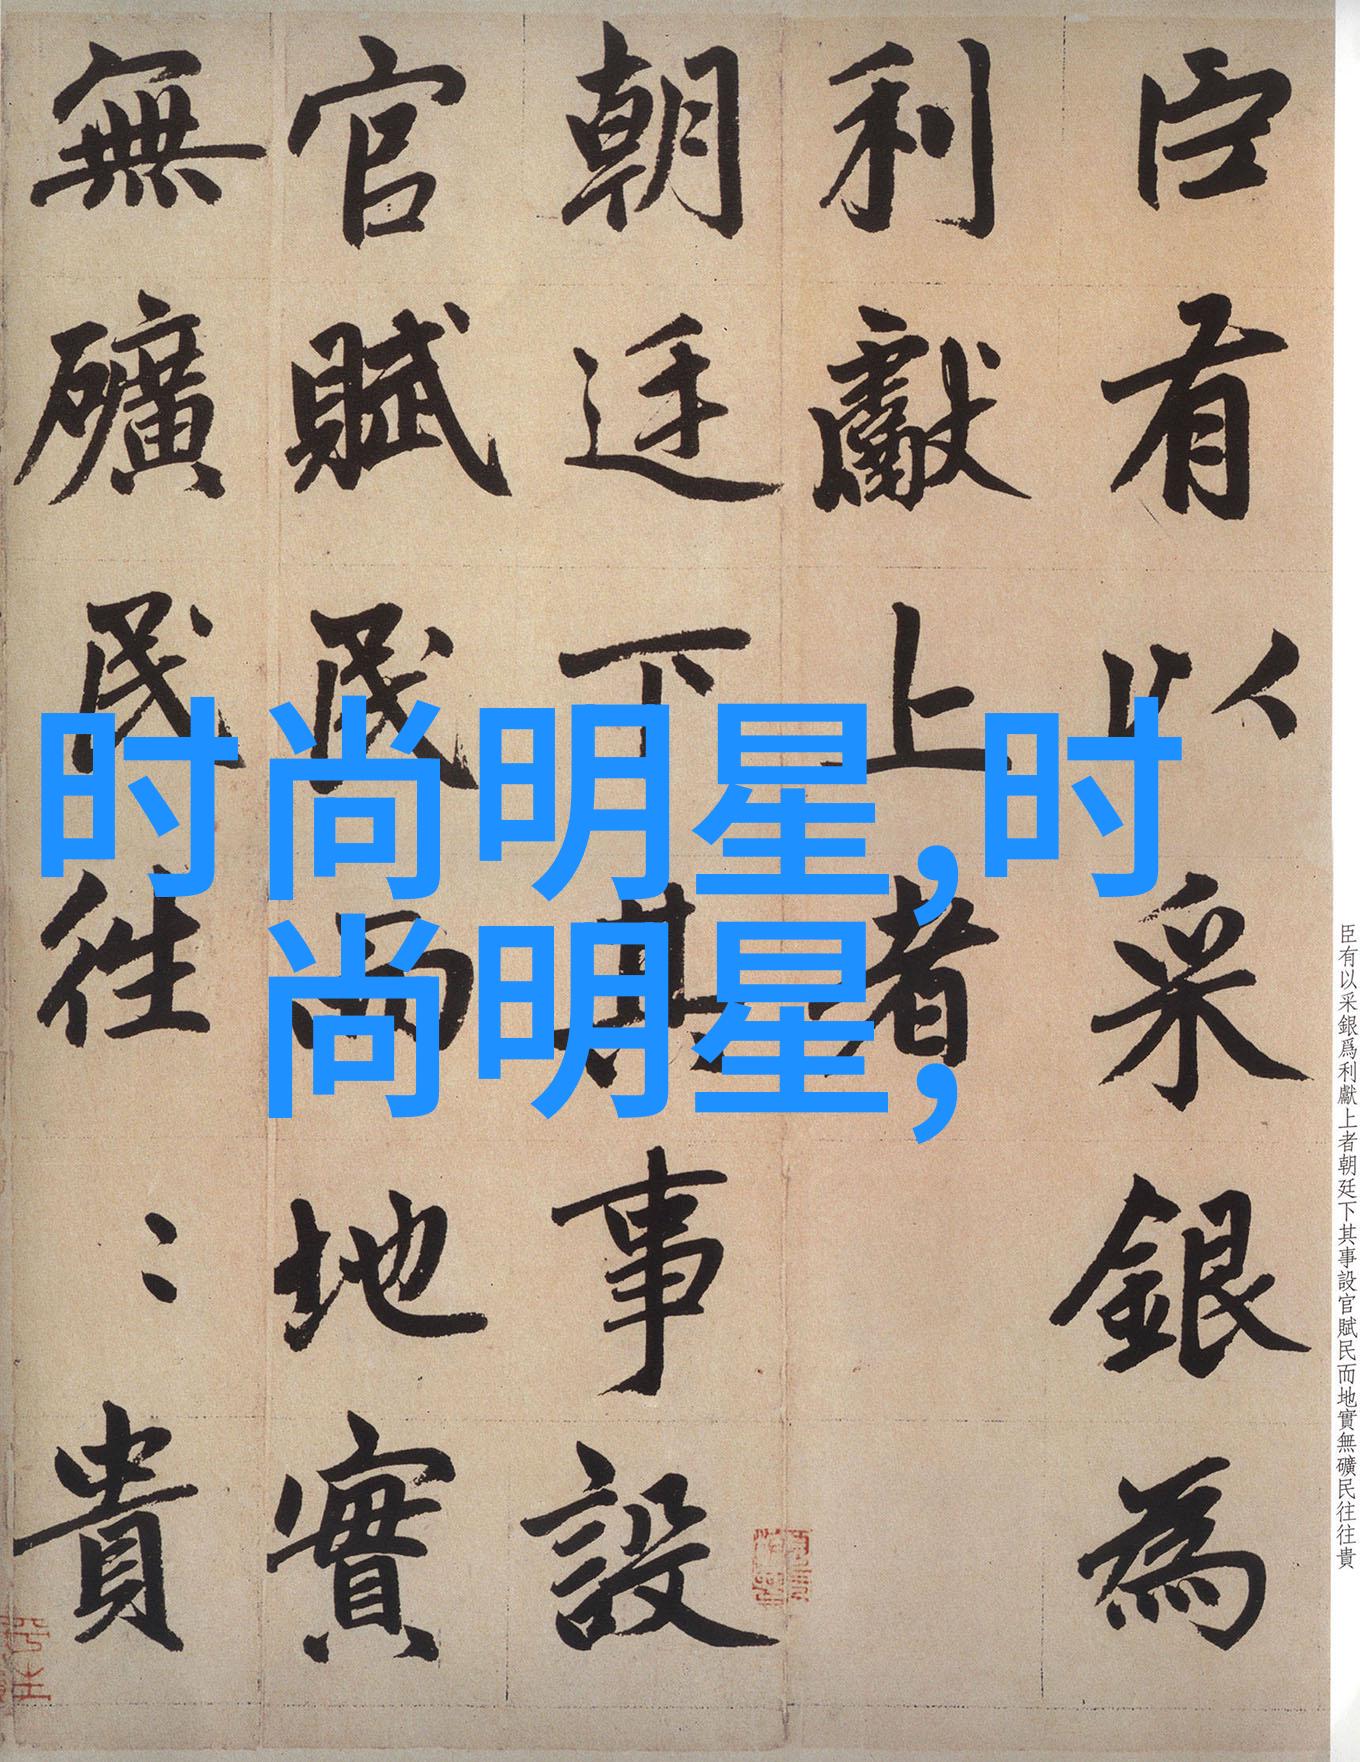 臣有以采銀為
利獻上者
朝廷下其事設
官賦民而地實
無礦民往〻貴
时尚明星,时
尚明星,
臣有以采銀爲利獻上者朝廷下其事設官賦民而地實無礦民往往貴